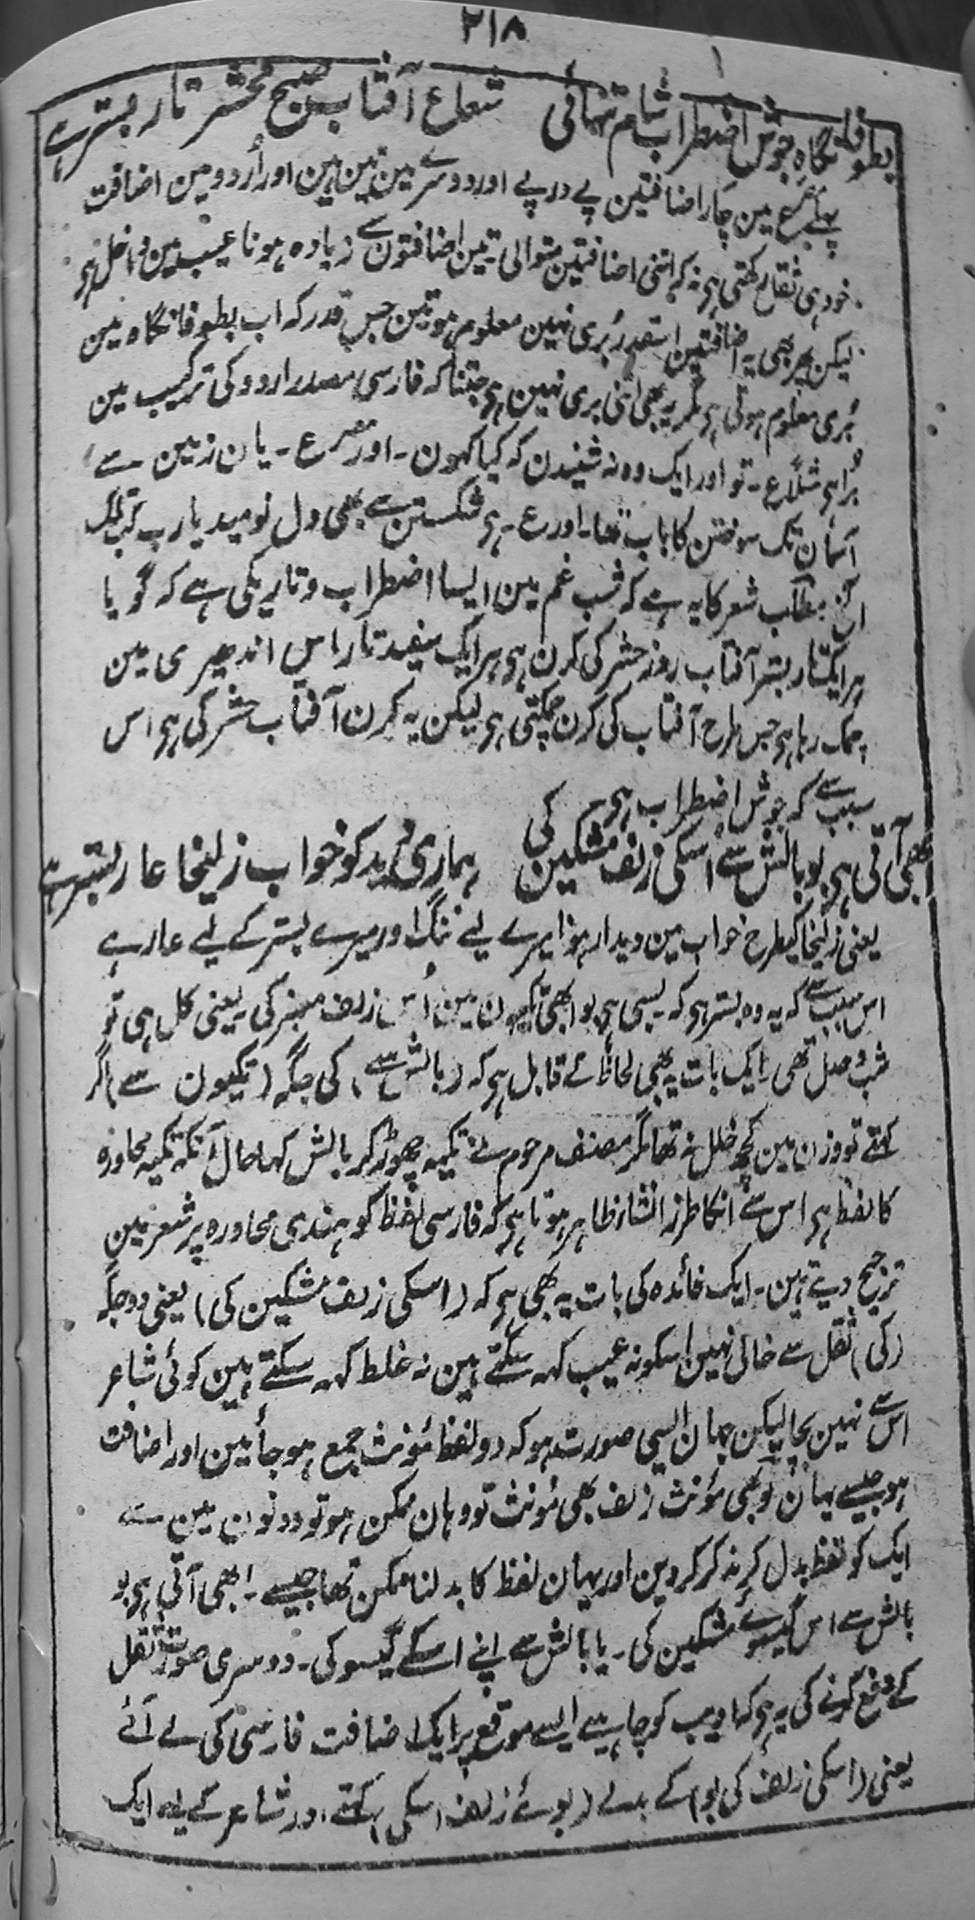 ۲۱۸
بطوفاں گاہ جوش اضطراب شام تنہائی شعاع آفتاب صبح محشر تار بستر ہے
پہلے مصرع مین چار اضافتین پے در پے اور دوسرے مین تین ہین اور اُردو مین اضافت
خود ہی ثقل رکھتی ہی نہ کہ اتنی اضافتین متوالی تین اضافتون سے زیادہ ہونا عیب مین داخل ہی
لیکن پھر بھی یہ اضافتین اسقدر بُری نہین معلوم ہوتین جس قدر کہ اب بطوفانگاہ مین
بُری معلوم ہوتی ہی مگر یہ بھی اتنی بری نہین ہی جتنا کہ فارسی مصدر اردو کی ترکیب مین
بُرا ہی مثلاً ع۔ تو اور ایک وہ نہ شنیدن کہ کیا کہون۔ اور مصرع۔ یان زمین سے
آسمان تک سوختن کا باب تھا۔ اور ع۔ ہی شکستن سے بھی دل نومید یارب کب تلک
الخ مطلب شعر کا یہ ہے کہ شب غم مین ایسا اضطراب و تاریکی ہے کہ گویا
ہر ایک تار بستر آفتاب روز حشر کی کرن ہی ہر ایک سفید تار اس اندھیری مین
چمک رہا ہی جس طرح آفتاب کی کرن چمکتی ہی لیکن یہ کرن آفتاب حشر کی ہی اس
سبب سے کہ جوش اضطراب ہی۔
ابھی آتی ہی بو بالش سے اُسکی زلف مشکین کی ہماری دید کو خواب زلیخا عار بستر ہے
یعنی زلیخا کیطرح خواب مین دیدار ہونا میرے لیے ننگ اور میرے بستر کے لیے عار ہے
اس سبب سے کہ یہ وہ بستر ہی کہ بسی ہی بو ابھی تکیون مین اُس زلف معنبر کی یعنی کل ہی تو
شب وصل تھی ایک بات یہ بھی لحاظ کے قابل ہی کہ (بالش سے) کی جگہ (تکیون سے) اگر
کہتے تو وزن مین کچھ خلل نہ تھا مگر مصنف مرحوم نے تکیہ چھوڑ کر بالش کہا حال آنکہ تکیہ محاورہ
کا لفظ ہی اس سے انکا طرز انشا ظاہر ہوتا ہی کہ فارسی لفظ کو ہندی محاورہ پر شعر مین
ترجیح دیتے ہین۔ ایک فائدہ کی بات یہ بھی ہی کہ (اسکی زلف مشکین کی) یعنی دو جگہ
(کی) ثقل سے خالی نہین اسکو نہ عیب کہہ سکتے ہین نہ غلط کہہ سکتے ہین کوئی شاعر
اس سے نہین بچا لیکن جہان ایسی صورت ہو کہ دو لفظ مؤنث جمع ہو جائین اور اضافت
ہو جیسے یہان بو بھی مؤنث زلف بھی مؤنث تو وہان ممکن ہو تو دونون مین سے
ایک کو لفظ بدل کر مذکر کر دین اور یہان لفظ کا بدلنا ممکن تھا جیسے۔ ابھی آتی ہی بو
بالش سے اس گیسوے مشکین کی۔ یا بالش سے اپنے اسکے گیسو کی۔ دوسری صورت ثقل
کے دفع کرنے کی یہ ہی کہ ادیب کو چاہیے ایسے موقع پر ایک اضافت فارسی کی لے آئے
یعنی (اسکی زلف کی بو) کے بدلے (بوئے زلف اسکی) کہتے اور شاعر کے لیے ایک